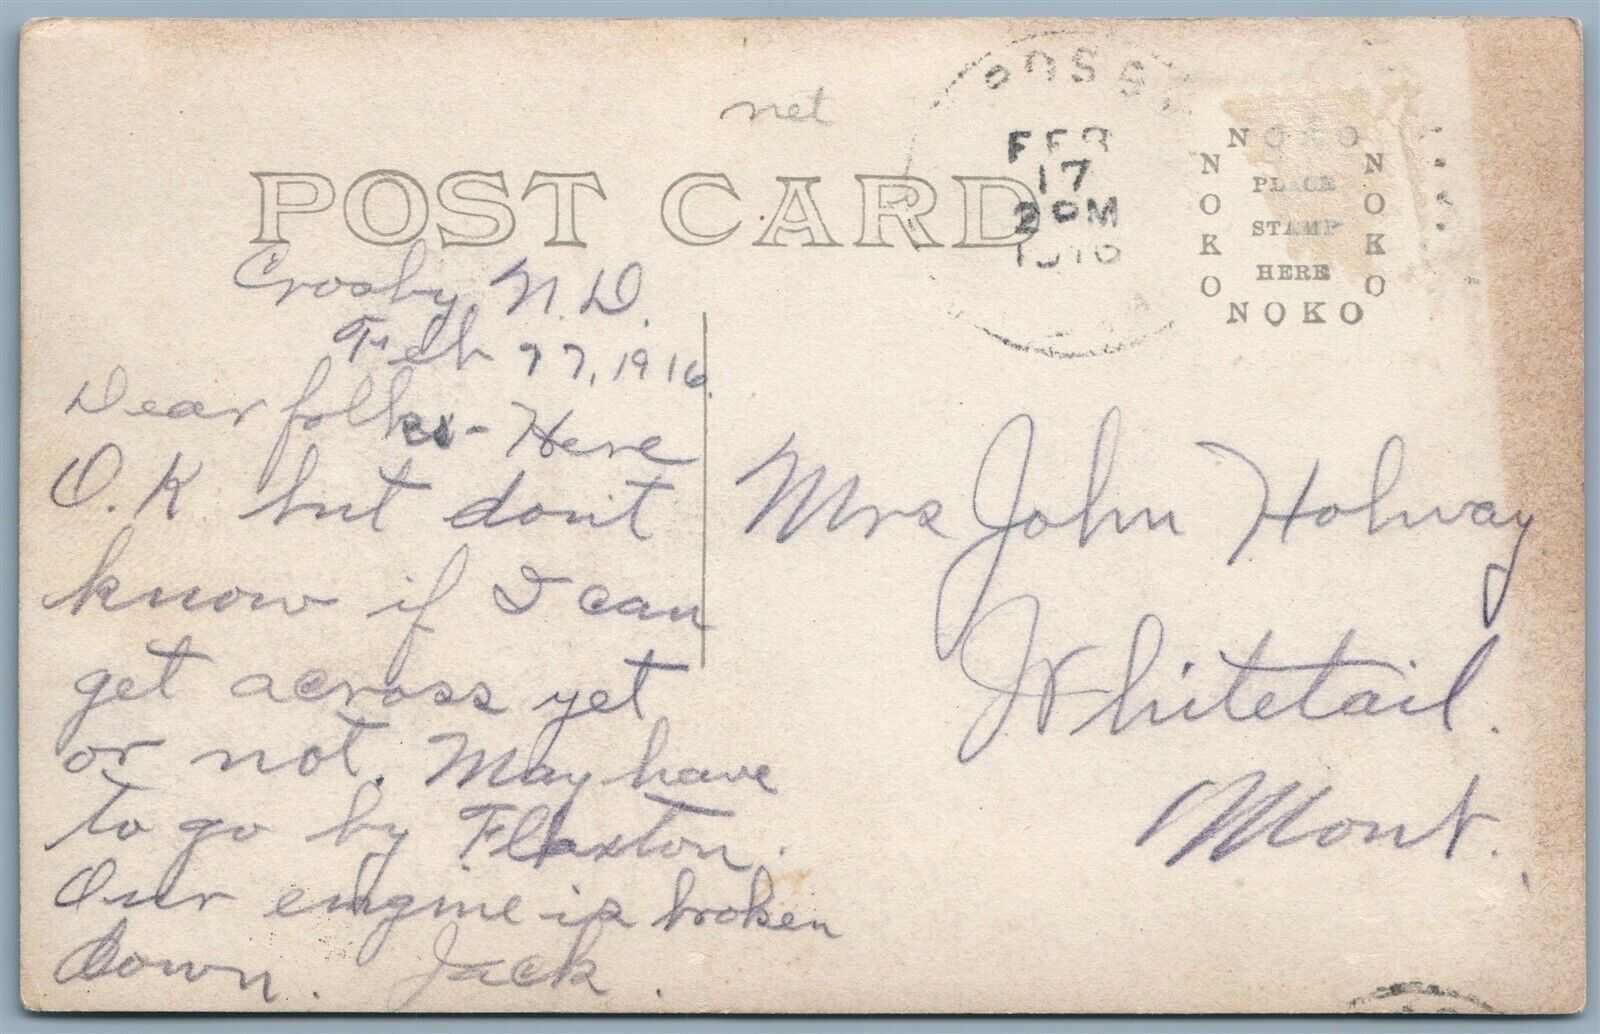 net
POST CARD
FEB
17
2 PM
1916
NOKO
NOKO
PLACE
STAMP
HERE
NOKO
NOKO
Crosby, N.D.
Feb 17, 1916
Dear folks - Here
O.K. but don't
know if I can
get across yet
or not. May have
to go by Flaxton.
Our engine is broken
down. Jack.
Mrs John Holway
Whitetail.
Mont.